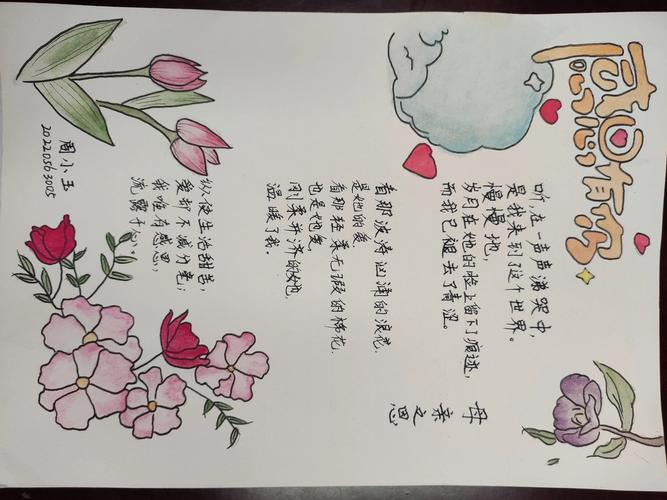 感恩有你
母亲之恩
听，在一声声啼哭中，
是我来到了这个世界。
慢慢地，
岁月在她的脸上留下了痕迹，
而我已褪去了青涩。
看那波涛汹涌的浪花，
是她的爱
看那轻柔无瑕的棉花，
也是她爱，
刚柔并济的她，
温暖了我。
纵使生活甜苦
爱却不减分毫；
我唯有感恩，
流露于心。
周小玉
20220563005